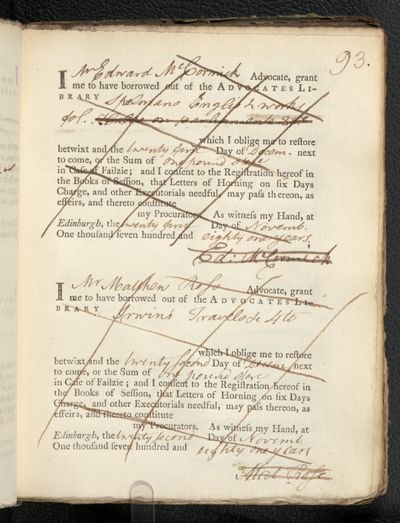 93.
I Mr Edward McCormick Advocate, grant
me to have borrowed out of the ADVOCATES LI-
BRARY Spelmans English works
fol.
which I oblige me to restore
betwixt and the twenty first Day of Decem. next
to come, or the Sum of one pound
in Case of Failzie; and I consent to the Registration hereof in
the Books of Session, that Letters of Horning on six Days
Charge, and other Executorials needful, may pass thereon, as
effeirs, and thereto constitute
my Procurators. As witness my Hand, at
Edinburgh, the twenty first Day of Novemb.
One thousand seven hundred and eighty one years
Ed: McCormick
I Mr Matthew Ross Advocate, grant
me to have borrowed out of the ADVOCATES LI-
BRARY Irwins Travels 4to
which I oblige me to restore
betwixt and the twenty second Day of Decem next
to come, or the Sum of one pound
in Case of Failzie; and I consent to the Registration hereof in
the Books of Session, that Letters of Horning on six Days
Charge, and other Executorials needful, may pass thereon, as
effeirs, and thereto constitute
my Procurators. As witness my Hand, at
Edinburgh, the twenty second Day of Novemb
One thousand seven hundred and eighty one years
Matt. Ross